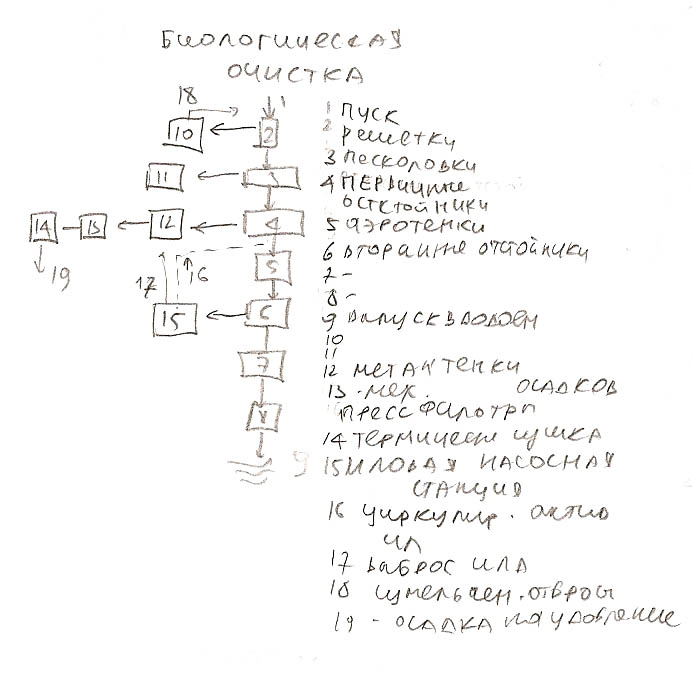 БИОЛОГИЧЕСКАЯ
ОЧИСТКА
18
1
10
2
11
3
14
13
12
4
19
17
16
5
15
6
7
8
9
1 ПУСК
2 решетки
3 песколовки
4 ПЕРВИЧНЫЕ
отстойники
5 аэротенки
6 вторичные отстойники
7 -
8 -
9 выпуск в водоем
10
11
12 метантенки
13 -мех. осадков
пресс фильтры
14 термическ сушка
15 ИЛОВАЯ НАСОСНАЯ
СТАНЦИЯ
16 циркулир. актив
ил
17 выброс ила
18 измельчен. отбросы
19 - осадка на удобрение